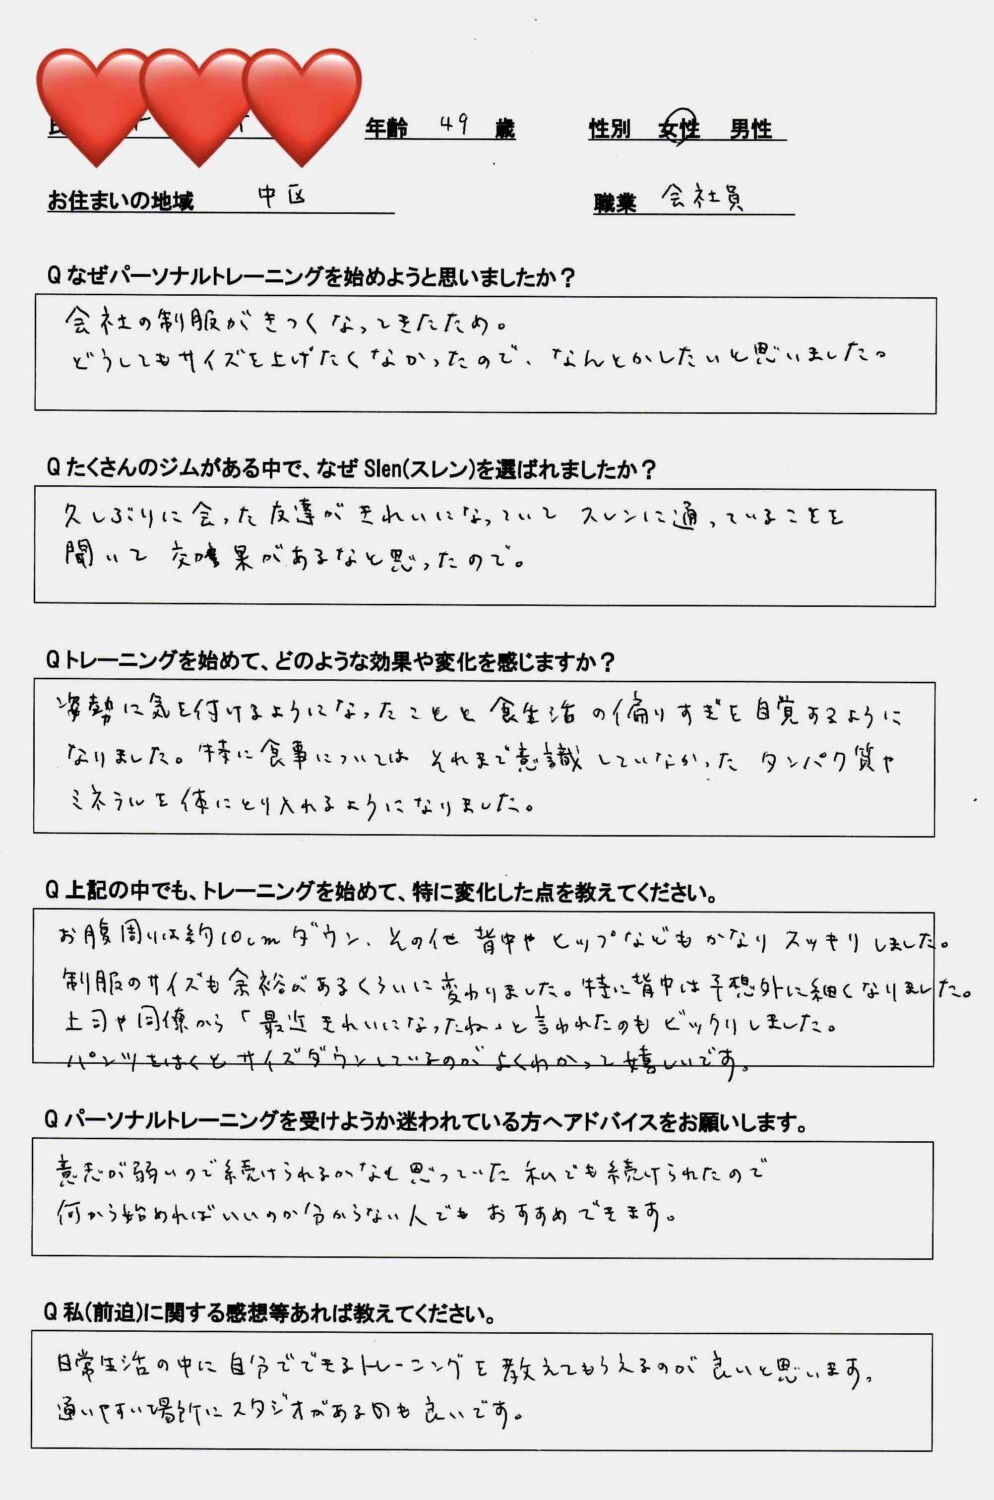 年齢 49 歳 性別 女性 男性
お住まいの地域 中区 職業 会社員
Q なぜパーソナルトレーニングを始めようと思いましたか？
会社の制服がきつくなってきたため。
どうしてもサイズを上げたくなかったので、なんとかしたいと思いました。
Q たくさんのジムがある中で、なぜ Slen(スレン)を選ばれましたか？
久しぶりに会った友達がきれいになっていて スレンに通っていることを
聞いて 効果があるなと思ったので。
Q トレーニングを始めて、どのような効果や変化を感じますか？
姿勢に気を付けるようになったことと 食生活の偏りすぎを自覚するように
なりました。特に食事については それまで意識していなかった タンパク質や
ミネラルを体にとり入れるようになりました。
Q 上記の中でも、トレーニングを始めて、特に変化した点を教えてください。
お腹周りは約10cmダウン、その他 背中や ヒップなどもかなり スッキリしました。
制服のサイズも余裕があるくらいに変わりました。特に背中は予想外に細くなりました。
上司や同僚から「最近きれいになったね」と言われたのもビックリしました。
パンツをはくとサイズダウンしているのがよくわかって嬉しいです。
Q パーソナルトレーニングを受けようか迷われている方へアドバイスをお願いします。
意志が弱いので続けられるかなと思っていた 私でも続けられたので
何から始めればいいのか分からない人でも おすすめできます。
Q 私(前迫)に関する感想等あれば教えてください。
日常生活の中に自分でできるトレーニングを教えてもらえるのが良いと思います。
通いやすい場所にスタジオがあるのも良いです。